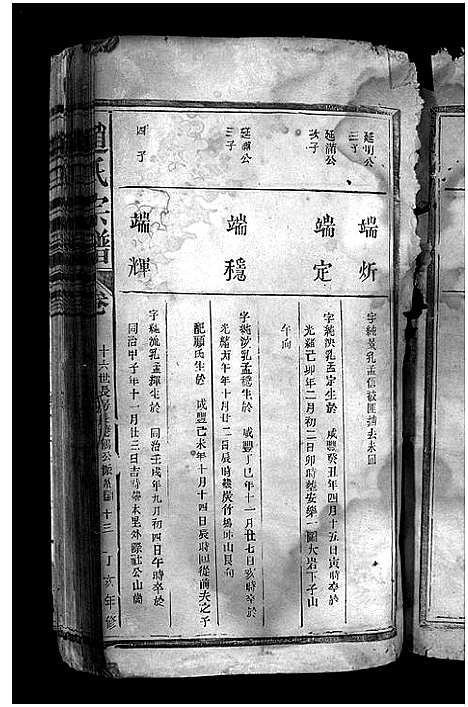 延明公
三子
端炘
字純㷱乳孟信被匪擄去未回
延滿公
次子
端定
字純泱乳孟定生於 咸豐癸丑年四月十五日寅時卒於
光緒己卯年二月初二日卯時葬安樂一圖大岩下子山
午向
延滿公
三子
端穩
字純 乳孟穩生於 咸豐丁巳年十一月廿七日亥時卒於
光緒丙午年十月廿二日辰時葬炭竹塢 山艮向
配顧氏生於 咸豐己未年十月十四日辰時回從前夫之子
四子
端輝
字純流乳孟輝生於 同治壬戌年九月初四日午時卒於
同治甲子年十一月廿三日吉時葬木里外 社公山崗
趙氏宗譜
卷
十六世長房 公派系圖
十三
丁亥年修